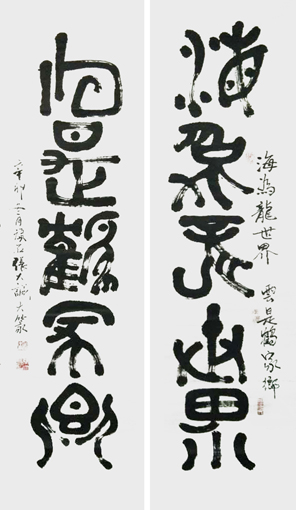 海為龍世界
海為龍世界 雲是鶴家鄉
雲是鶴家鄉
辛卯 月 張大 大篆